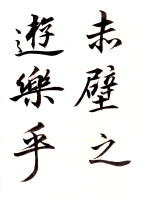 赤壁之
遊樂乎